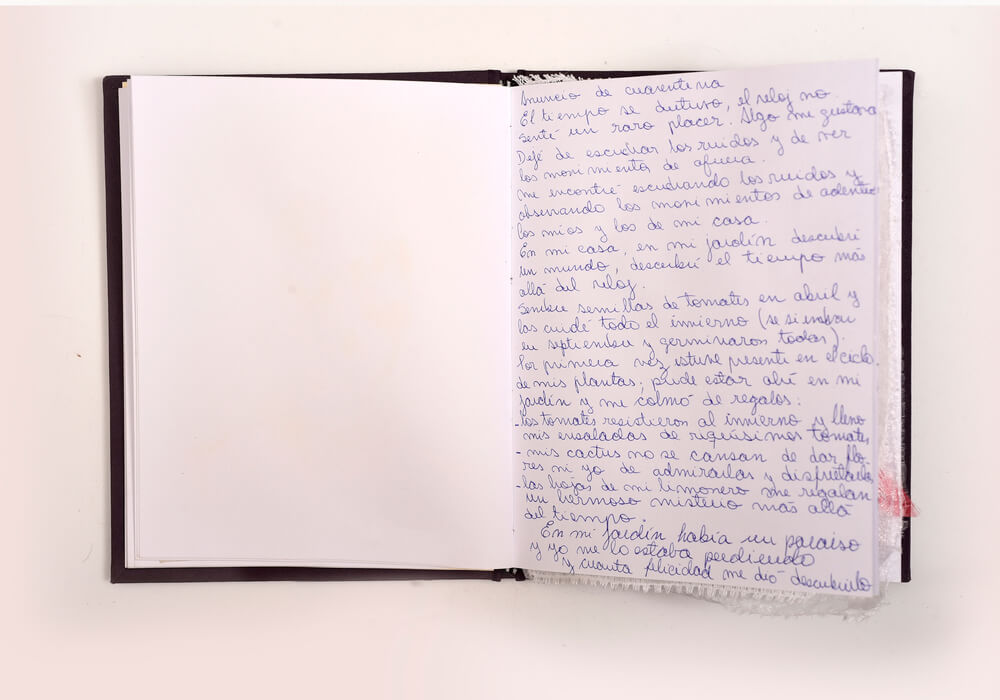 Anuncio de cuarentena
El tiempo se detuvo, el reloj no.
Sentí un raro placer. Algo me gustaba
Dejé de escuchar los ruidos y de ver
los movimientos de afuera.
me encontré escuchando los ruidos y
observando los movimientos de adentro
los mios y los de mi casa.
En mi casa, en mi jardín descubrí
un mundo, descubrí el tiempo más
allá del reloj.
Sembré semillas de tomates en abril y
las cuidé todo el invierno (se siembran
en septiembre y germinaron todas).
Por primera vez estuve presente en el ciclo
de mis plantas; pude estar ahí en mi
jardín y me colmó de regalos:
-los tomates resistieron al invierno y lleno
mis ensaladas de riquísimos tomates
-mis cactus no se cansan de dar flo-
res ni yo de admirarlas y disfrutarlas
-las hojas de mi limonero me regalan
un hermoso misterio más allá
del tiempo.
En mi jardín había un paraiso
y yo me lo estaba perdiendo
y cuanta felicidad me dió descubrirlo